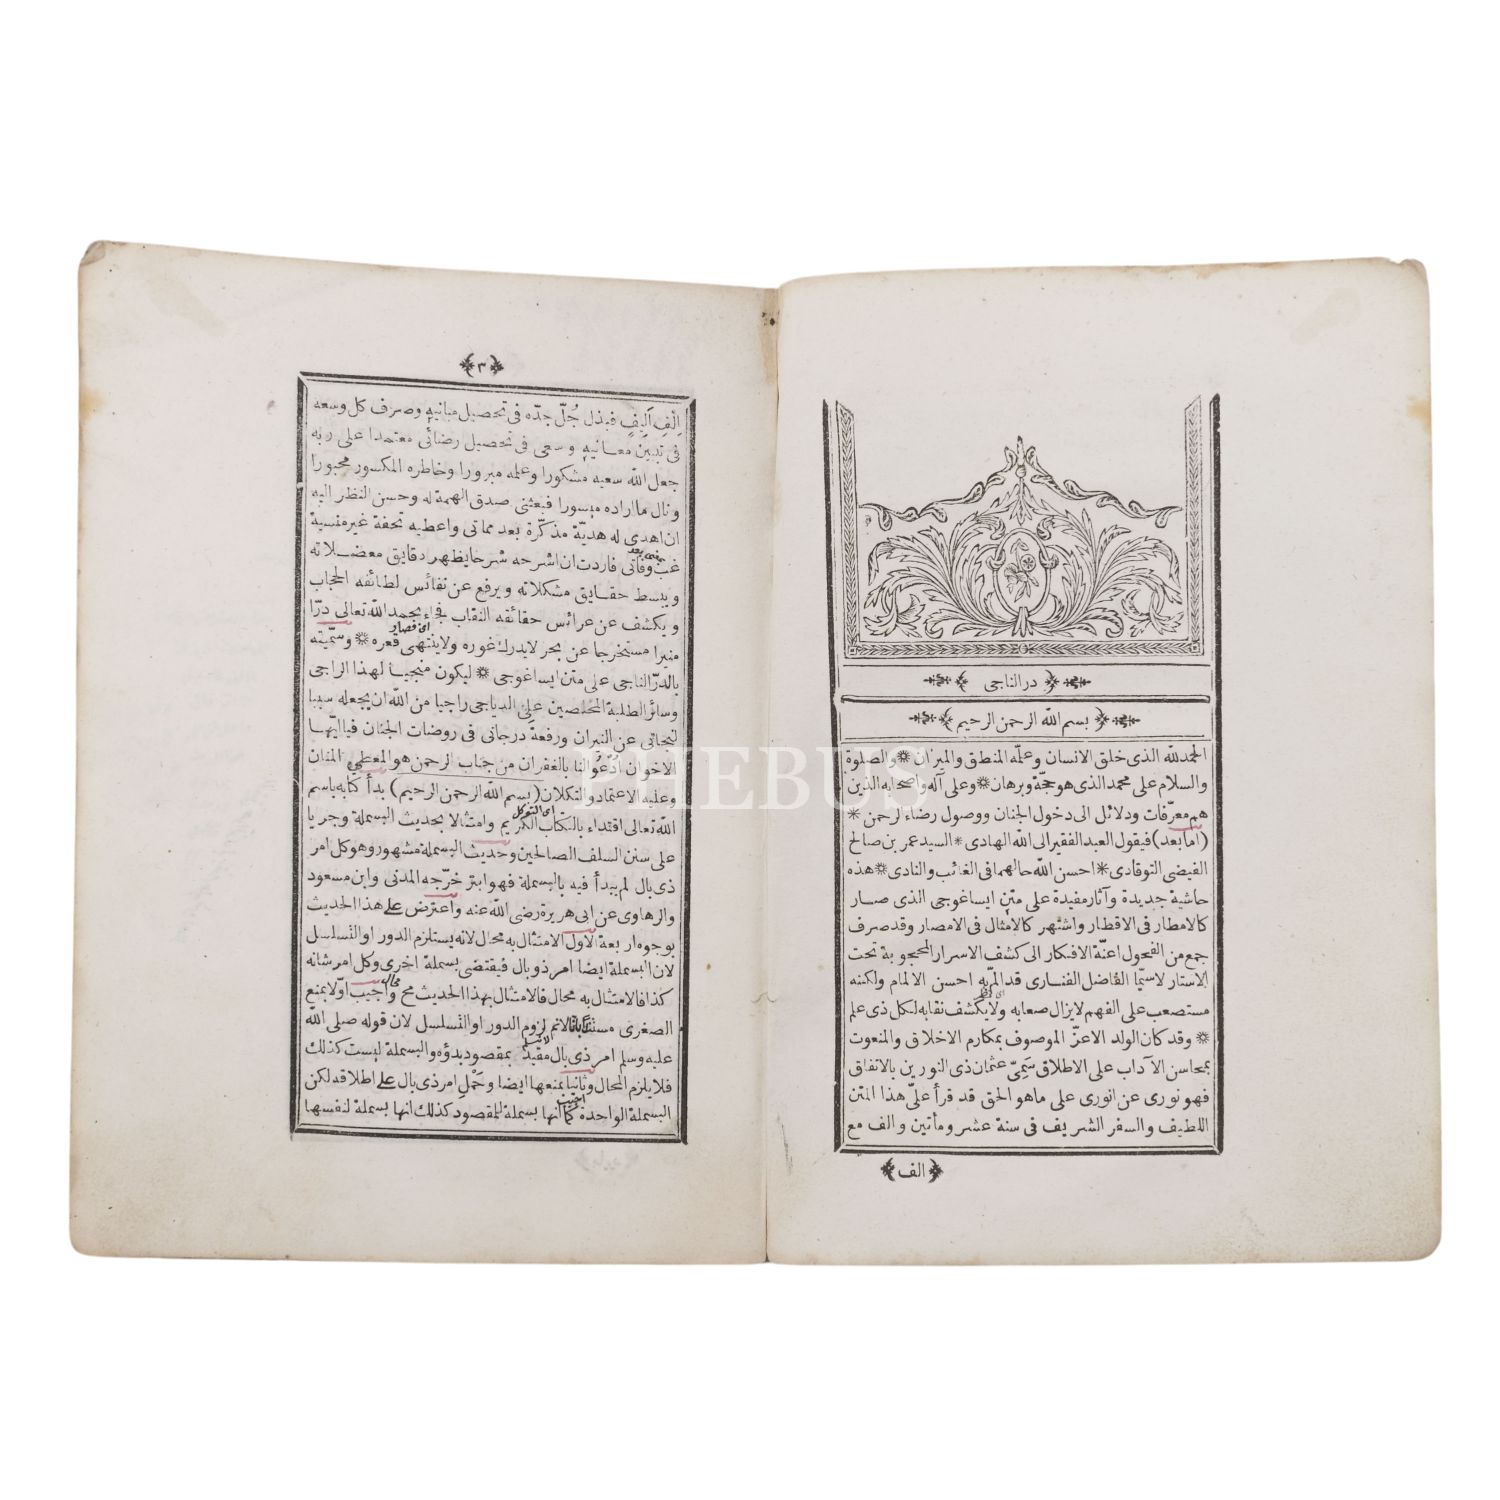 در الناجى
بسم الله الرحمن الرحيم
الحمد لله الذى خلق الانسان وعلمه المنطق والميزان والصلوة
والسلام على محمد الذى هو حجّة وبرهان وعلى آله واصحابه الذين
هم معرّفات ودلائل الى دخول الجنان ووصول رضاء الرحمن
(اما بعد) فيقول العبد الفقير الى الله الهادى السيد عمر بن صالح
الفيضى التوقادى احسن الله حالهما فى الغائب والنادى هذه
حاشية جديدة وآثار مفيدة على متن ايساغوجى الذى صار
كالامطار فى الاقطار واشتهر كالامثال فى الامصار وقد صرف
جمع من الفحول اعنّة الافكار الى كشف الاسرار المحجوبة تحت
الاستار لاسيّما الفاضل الفنارى قد المّ به احسن الالمام ولكنه
مستصعب على الفهم لايزال صعابه ولايكشف نقابه لكل ذى علم
وقد كان الولد الاعزّ الموصوف بمكارم الاخلاق والمنعوت
بمحاسن الآداب على الاطلاق سَمِىّ عثمان ذى النورين بالاتفاق
فهو نورى عن انورى على ماهو الحق قد قرأ علىّ هذا المتن
اللطيف والسفر الشريف فى سنة عشر ومأتين والف مع
الف
٣
اِلْفِ اَلِيفٍ فبذل جُلّ جدّه فى تحصيل مبانيه وصرف كل وسعه
فى تبيين معانيه وسعى فى تحصيل رضائى معتمدا على ربه
جعل الله سعيه مشكورا وعلمه مبرورا وخاطره المكسور مجبورا
ونال ما اراده ميسورا فبعثنى صدق الهمة له وحسن النظر اليه
ان اهدى له هديّة مذكّرة بعد مماتى واعطيه تحفة غير منسية
غب وفاتى فاردت ان اشرحه شرحا يظهر دقايق معضلاته
ويبسط حقايق مشكلاته ويرفع عن نفائس لطائفه الحجاب
ويكشف عن عرائس حقائقه النقاب فجاء بحمد الله تعالى درّا
منيرا مستخرجا عن بحر لايدرك غوره ولاينتهى قعره وسمّيته
بالدرّ الناجى على متن ايساغوجى ليكون منجيا لهذا الراجى
وسائر الطلبة المخلصين على الدياجى راجيا من الله ان يجعله سببا
لنجاتى عن النيران ورفعة درجاتى فى روضات الجنان فيا ايّها
الاخوان ادْعُوا لنا بالغفران من جناب الرحمن هو المعطى المنان
وعليه الاعتماد والتكلان (بسم الله الرحمن الرحيم) بدأ كتابه باسم
الله تعالى اقتداء بالكتاب الكريم وامتثالا بحديث البسملة وجريا
على سنن السلف الصالحين وحديث البسملة مشهور وهو كل امر
ذى بال لم يبدأ فيه بالبسملة فهو ابتر خرّجه المدنى وابن مسعود
والرهاوى عن ابى هريرة رضى الله عنه واعترض على هذا الحديث
بوجوه اربعة الاول الامتثال به محال لانه يستلزم الدور او التسلسل
لان البسملة ايضا امر ذو بال فيقتضى بسملة اخرى وكل امر شانه
كذا فالامتثال به محال فالامتثال بهذا الحديث مح واجيب اوّلا بمنع
الصغرى مستندا بانا لانم لزوم الدور او التسلسل لان قوله صلى الله
عليه وسلم امر ذى بال مقيد بمقصود بدؤه والبسملة ليست كذلك
فلا يلزم المحال وثانيا بمنعها ايضا وحَمْلِ امر ذى بال على اطلاقه لكن
البسملة الواحدة كما انها بسملة للمقصود كذلك انها بسملة لنفسها
PHEBUS